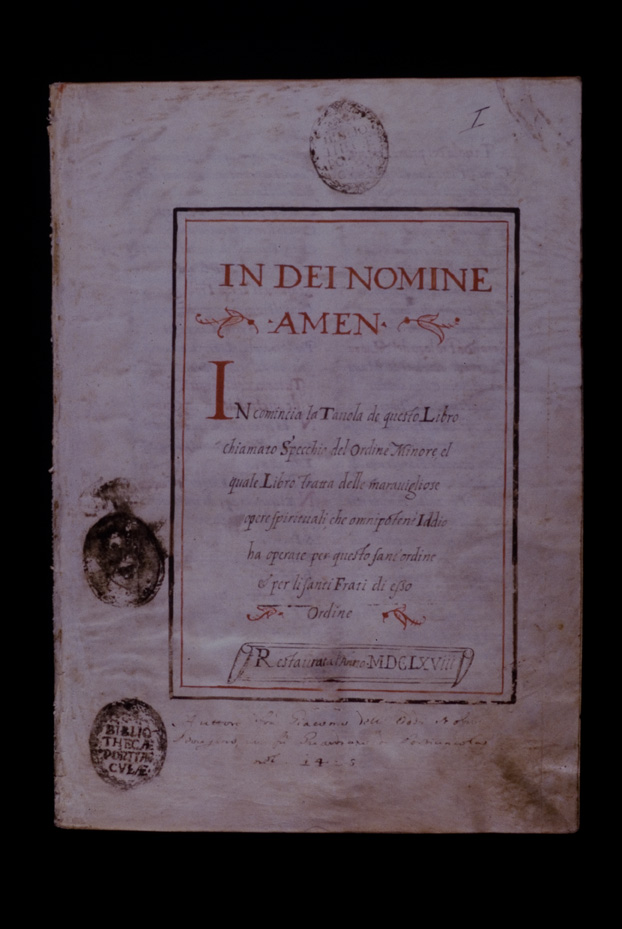 I
IN DEI NOMINE
·AMEN·
IN comincia la Tauola de questo Libro
chiamato Specchio del Ordine Minore el
quale Libro Tratta delle marauigliose
opere spirituali, che omnipotent Iddio
ha operate per questo sant'ordine
& per li santi Frati di esso
Ordine
Restaurata l'Anno MDCLXVIII
Auttore Fra Giacomo
BIBLIO
THECÆ
PORTIVN
CVLÆ